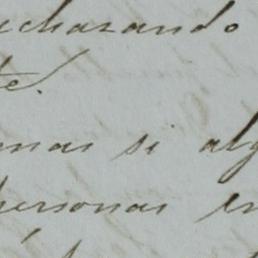 chazando
te.
mas si alg
personas en